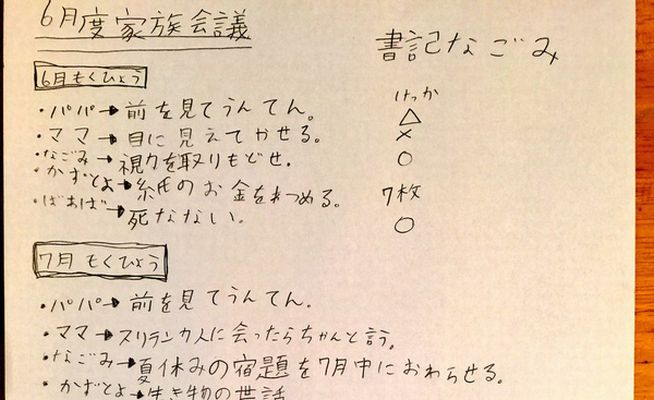 6月度家族会議
書記なごみ
6月もくひょう
けっか
・パパ→前を見てうんてん。 △
・ママ→目に見えてやせる。 ×
・なごみ→視力を取りもどせ. ○
・かずとよ→紙のお金をつめる。 7枚
・ばあば→死なない。 ○
7月もくひょう
・パパ→前を見てうんてん。
・ママ→スリランカ人に会ったらちゃんと言う。
・なごみ→夏休みの宿題を7月中におわらせる。
・かずとよ→生き物の世話